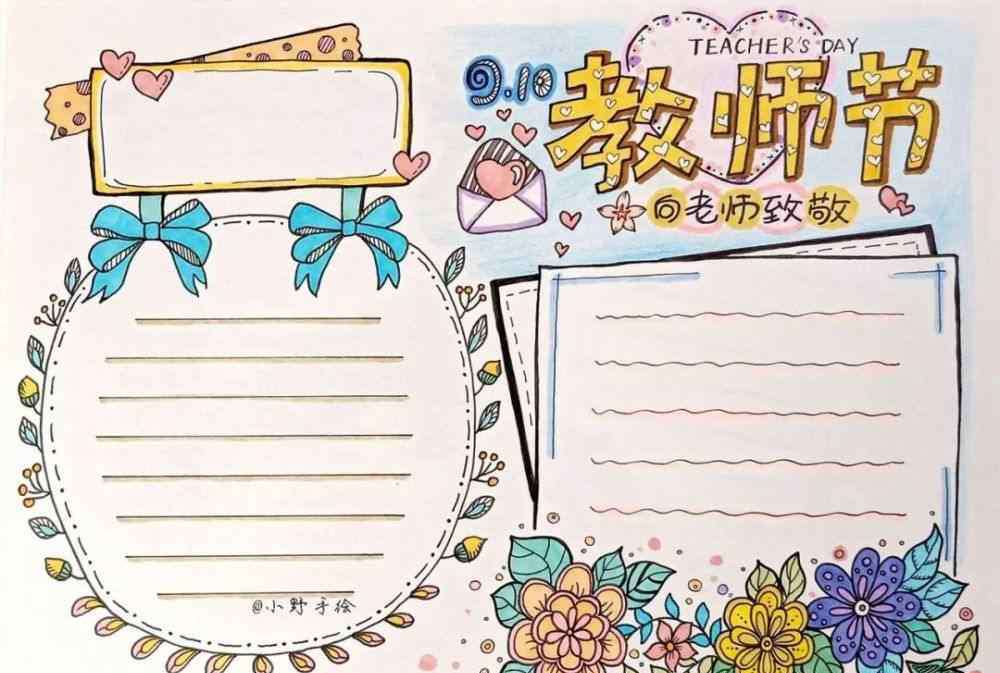 TEACHER'S DAY
9.10
教师节
向老师致敬
@小野手绘